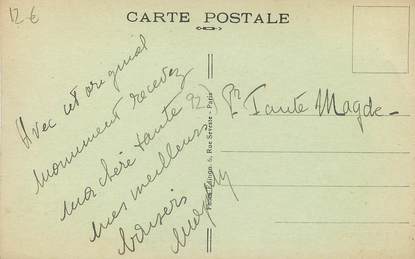 12 €
CARTE POSTALE
Avec cet original
monument recevez
ma chère tante
mes meilleurs
baisers
Pr Tante Magde
Rue Séreste - Paris